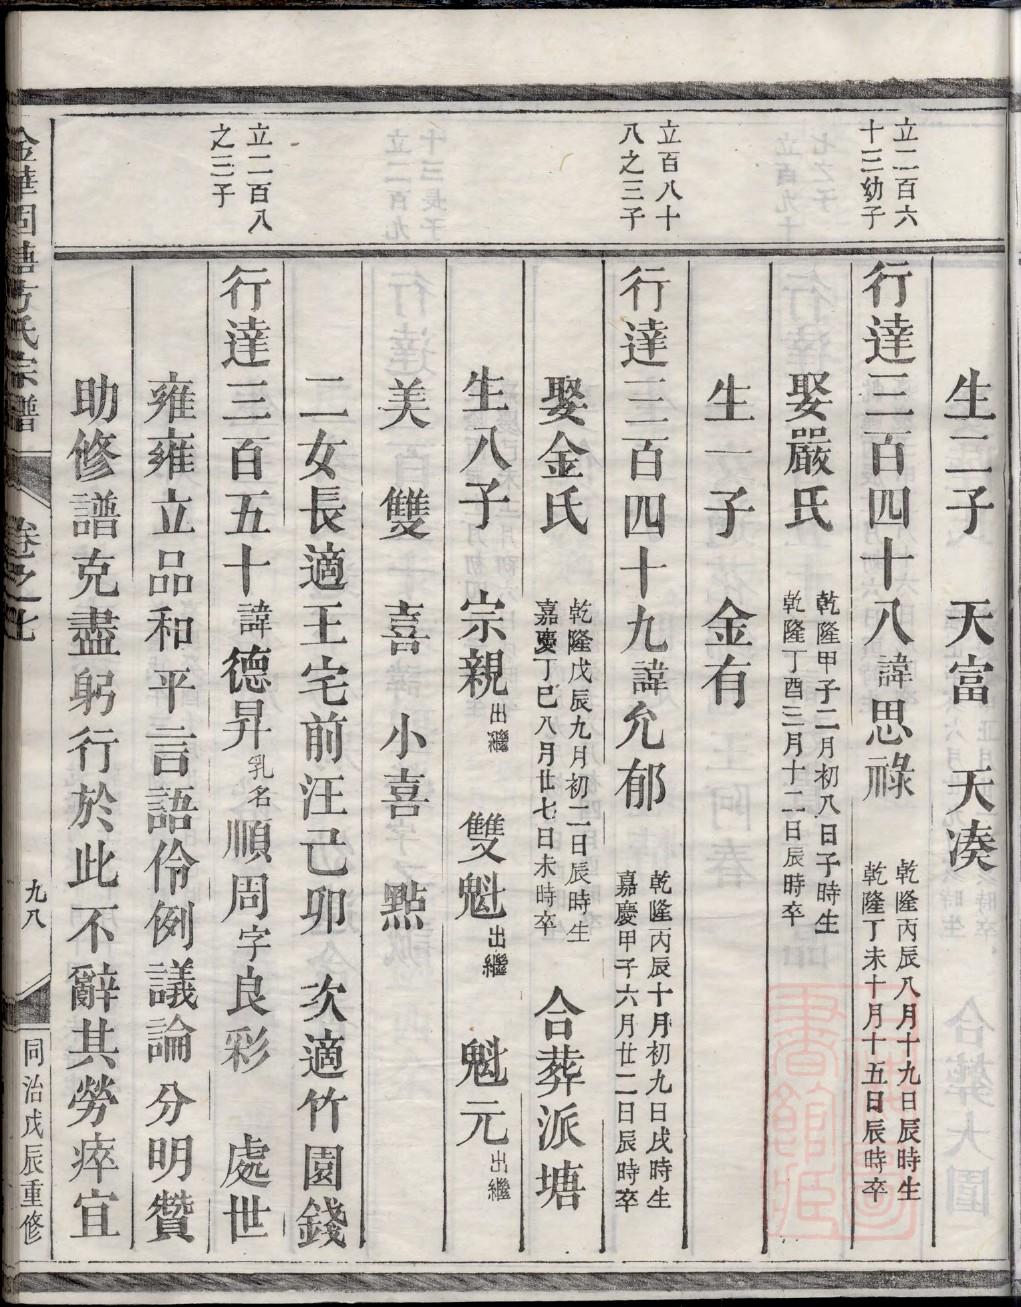 生二子　天富　天湊
立二百六
十三幼子
行達三百四十八諱思祿
乾隆丙辰八月十九日辰時生
乾隆丁未十月十五日辰時卒
娶嚴氏
乾隆甲子二月初八日子時生
乾隆丁酉三月十二日辰時卒
生一子　金有
立百八十
八之三子
行達三百四十九諱允郁
乾隆丙辰十月初九日戌時生
嘉慶甲子六月廿二日辰時卒
娶金氏
乾隆戊辰九月初二日辰時生
嘉慶丁巳八月廿七日未時卒
合葬派塘
生八子　宗親出繼　雙魁出繼　魁元出繼
美　雙　喜　小喜　㸃
二女長適王宅前汪己卯　次適竹園錢
立二百八
之三子
行達三百五十諱德昇乳名順周字良彩　處世
雍雍立品和平言語伶例議論分明贊
助修譜克盡躬行於此不辭其勞瘁宜
金華固塘方氏宗譜　卷之七　九八　同治戊辰重修